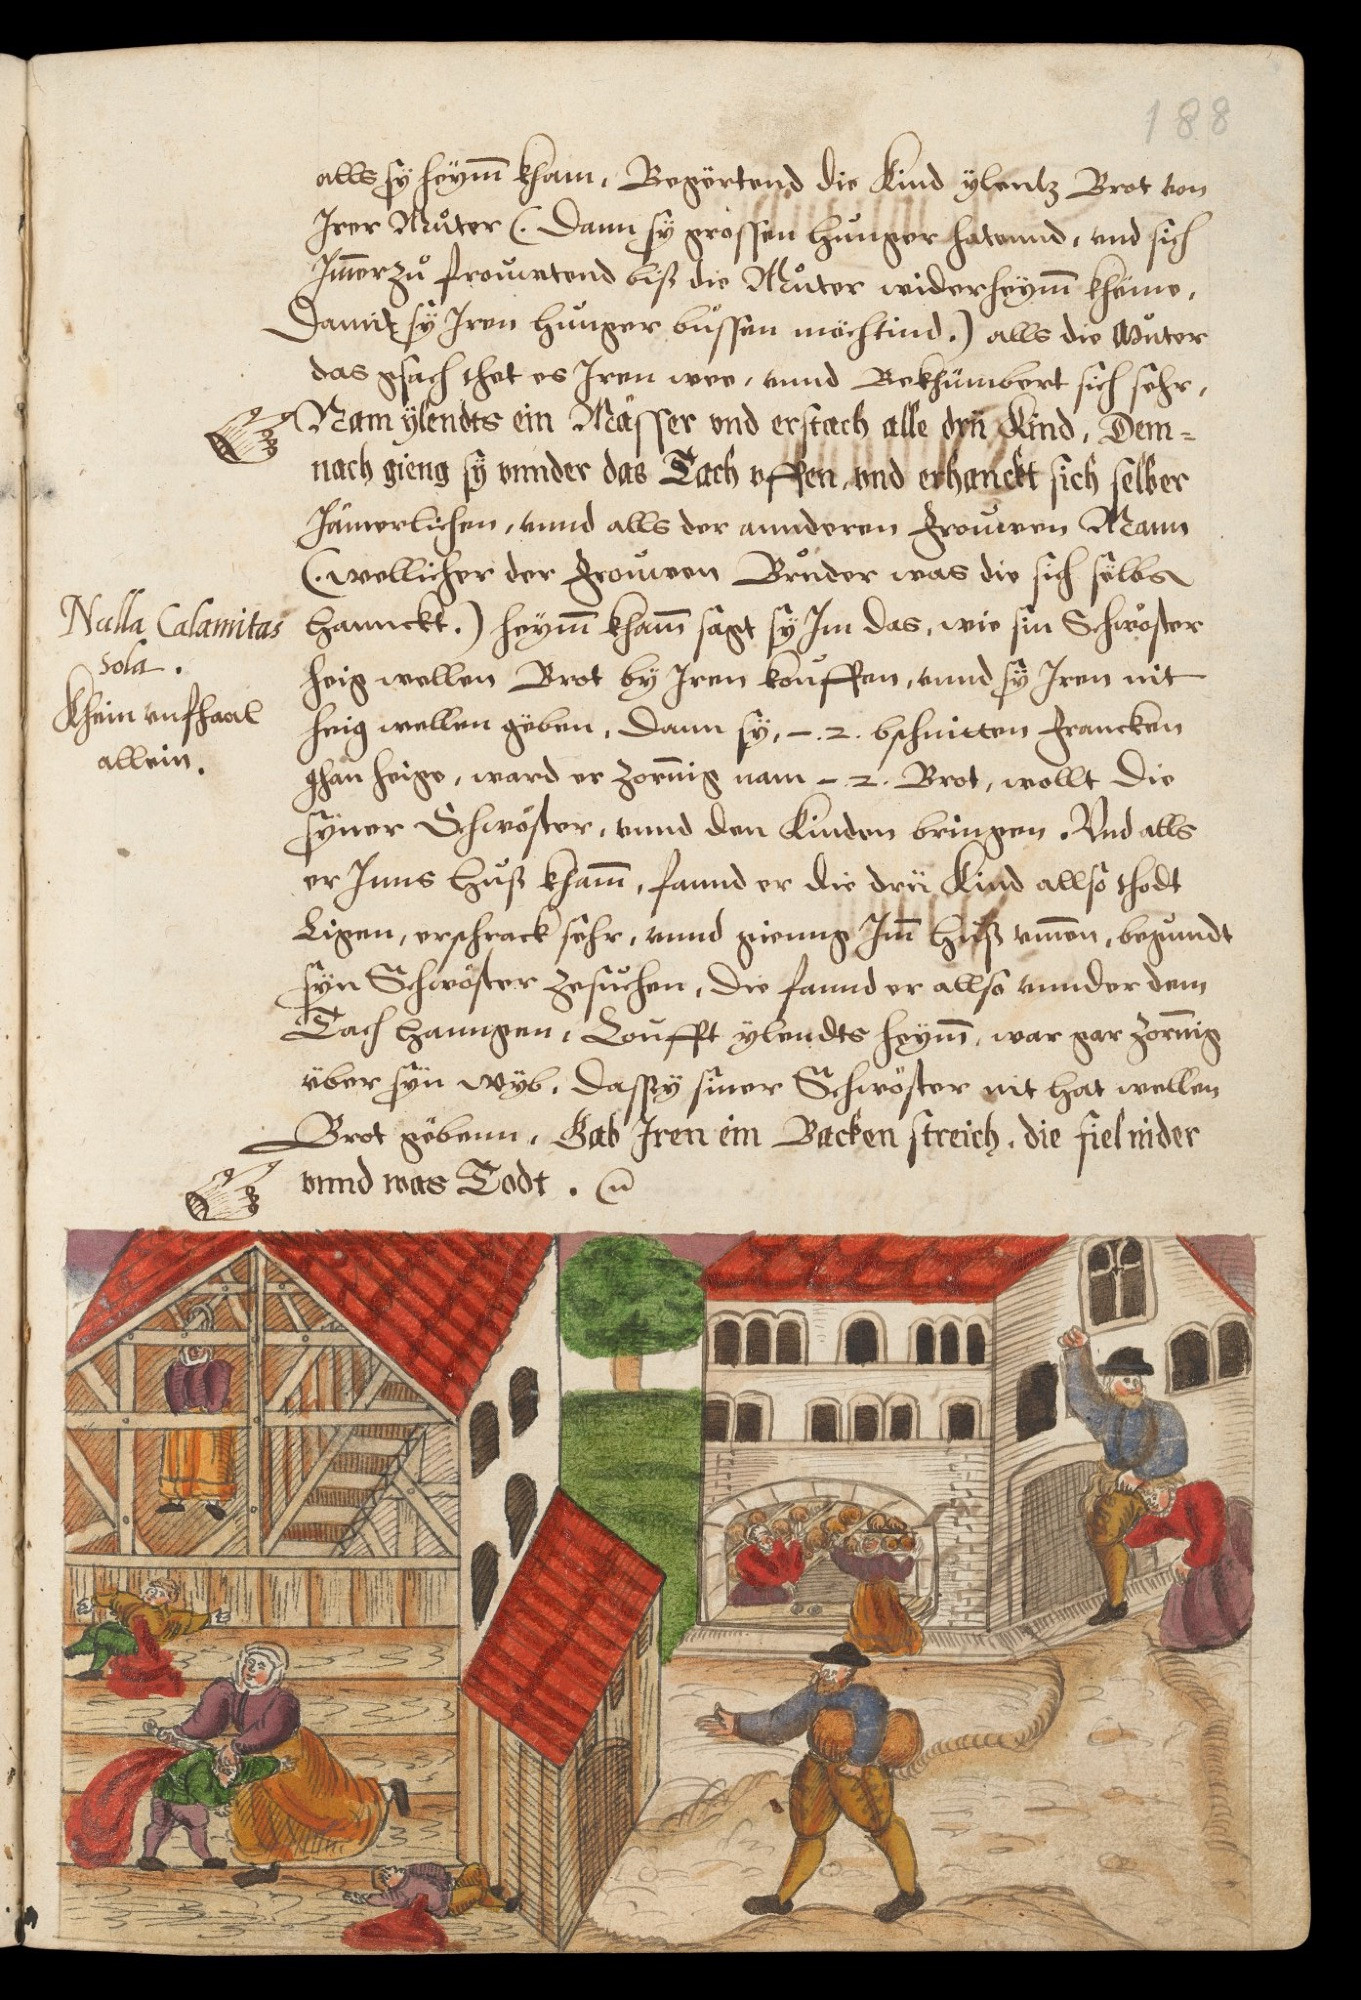 188
alls sy heym̄ kham, Begërtend die Kind ÿlentz Brot von
Irer Můter (. Dann sy grossen hunger hatennd, vnd sich
Im̄erzů frouwtend biß die Můter widerheym̄ khëme,
Damit sy Iren hunger bůssen möchtind.) alls die Můter
das gsach thet es Iren wee, vnnd Bekhümbert sich sehr,
Nam ÿlendts ein Mässer vnd erstach alle drü Kind, Dem=
nach gieng sÿ vnnder das Tach vffen, vnd erhanckt sich selber
Jämerlichen, vnnd alls der annderen frouwen Mann
(. wellicher der frouwen Brůder was die sich sëlbs
hannckt.) heym̄ kham̄ sagt sy Im das, wie sin Schwöster
heig wellen Brot by Iren kouffen, vnnd sÿ Iren nit
heig wellen gëben, Dann sy, – .2. bschnitten francken
ghan heige, ward er zornig nam – .2. Brot, wollt die
sÿner Schwöster, vnnd den Kinden bringen. Vnd alls
er Inns huß kham̄, fannd er die drü Kind allso thodt
Ligen, erschrack sehr, vnnd gienng Im̄ huß vmen, begundt
syn Schwöster zesůchen, die fannd er allso vnnder dem
Tach hanngen, Loufft ÿlendts heym̄, war gar zornig
über syn wÿb, dassÿ siner Schwöster nit hat wellen
Brot gëbenn, Gab Iren ein Backen streich, die fiel nider
vnnd was Todt.
Nulla Calamitas
sola.
Khein vnfhaal
allein.